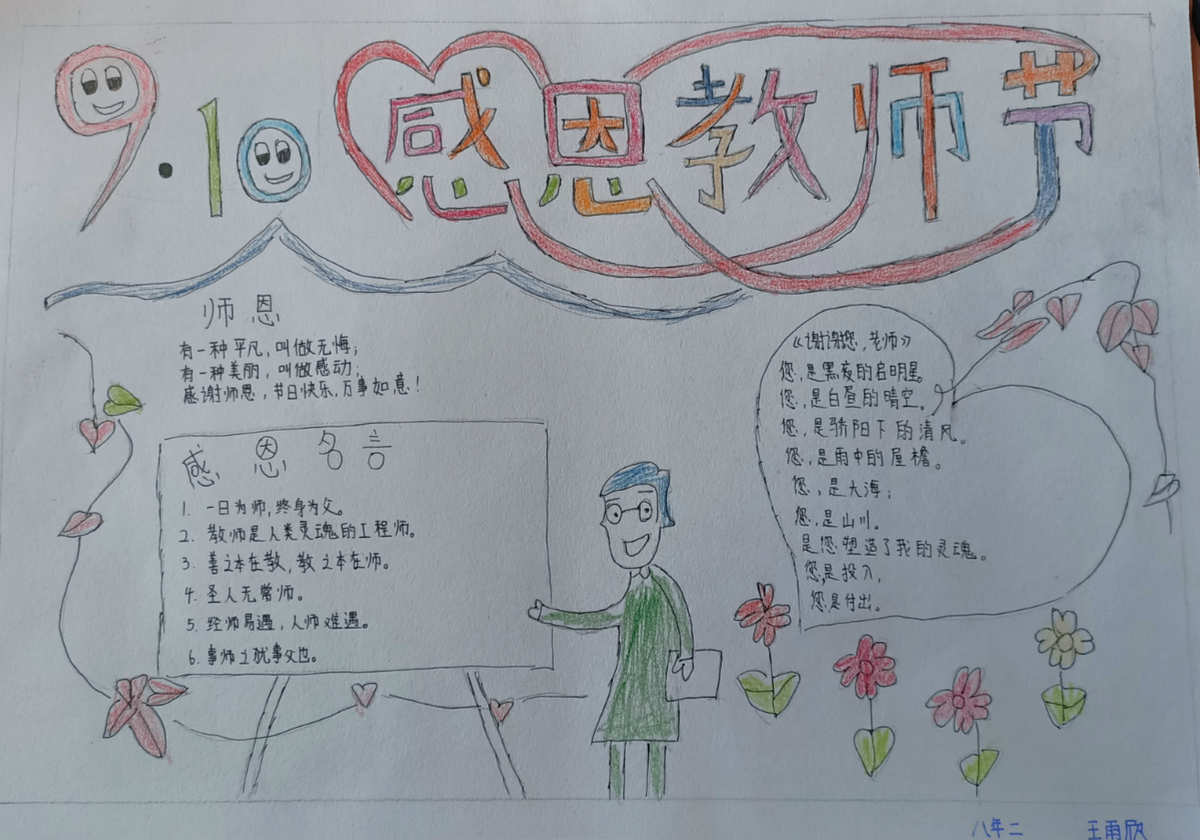 9.10 感恩教师节
师恩
有一种平凡，叫做无悔；
有一种美丽，叫做感动；
感谢师恩，节日快乐，万事如意！
感恩名言
1. 一日为师，终身为父。
2. 教师是人类灵魂的工程师。
3. 善之本在教，教之本在师。
4. 圣人无常师。
5. 经师易遇，人师难遇。
6. 事师之犹事父也。
《谢谢您，老师》
您，是黑夜的启明星。
您，是白昼的晴空。
您，是骄阳下的清风。
您，是雨中的屋檐。
您，是大海；
您，是山川。
是您塑造了我的灵魂。
您，是投入，
您，是付出。
八年二 王雨欣